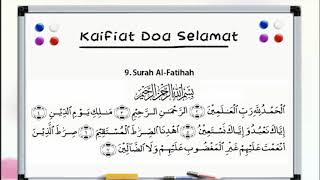 Kaifiat Doa Selamat
9. Surah Al-Fatihah
بِسْمِ اللَّهِ الرَّحْمَٰنِ الرَّحِيمِ
الْحَمْدُ لِلَّهِ رَبِّ الْعَالَمِينَ ۝ الرَّحْمَٰنِ الرَّحِيمِ ۝ مَالِكِ يَوْمِ الدِّينِ ۝
إِيَّاكَ نَعْبُدُ وَإِيَّاكَ نَسْتَعِينُ ۝ اهْدِنَا الصِّرَاطَ الْمُسْتَقِيمَ ۝ صِرَاطَ الَّذِينَ
أَنْعَمْتَ عَلَيْهِمْ غَيْرِ الْمَغْضُوبِ عَلَيْهِمْ وَلَا الضَّالِّينَ ۝